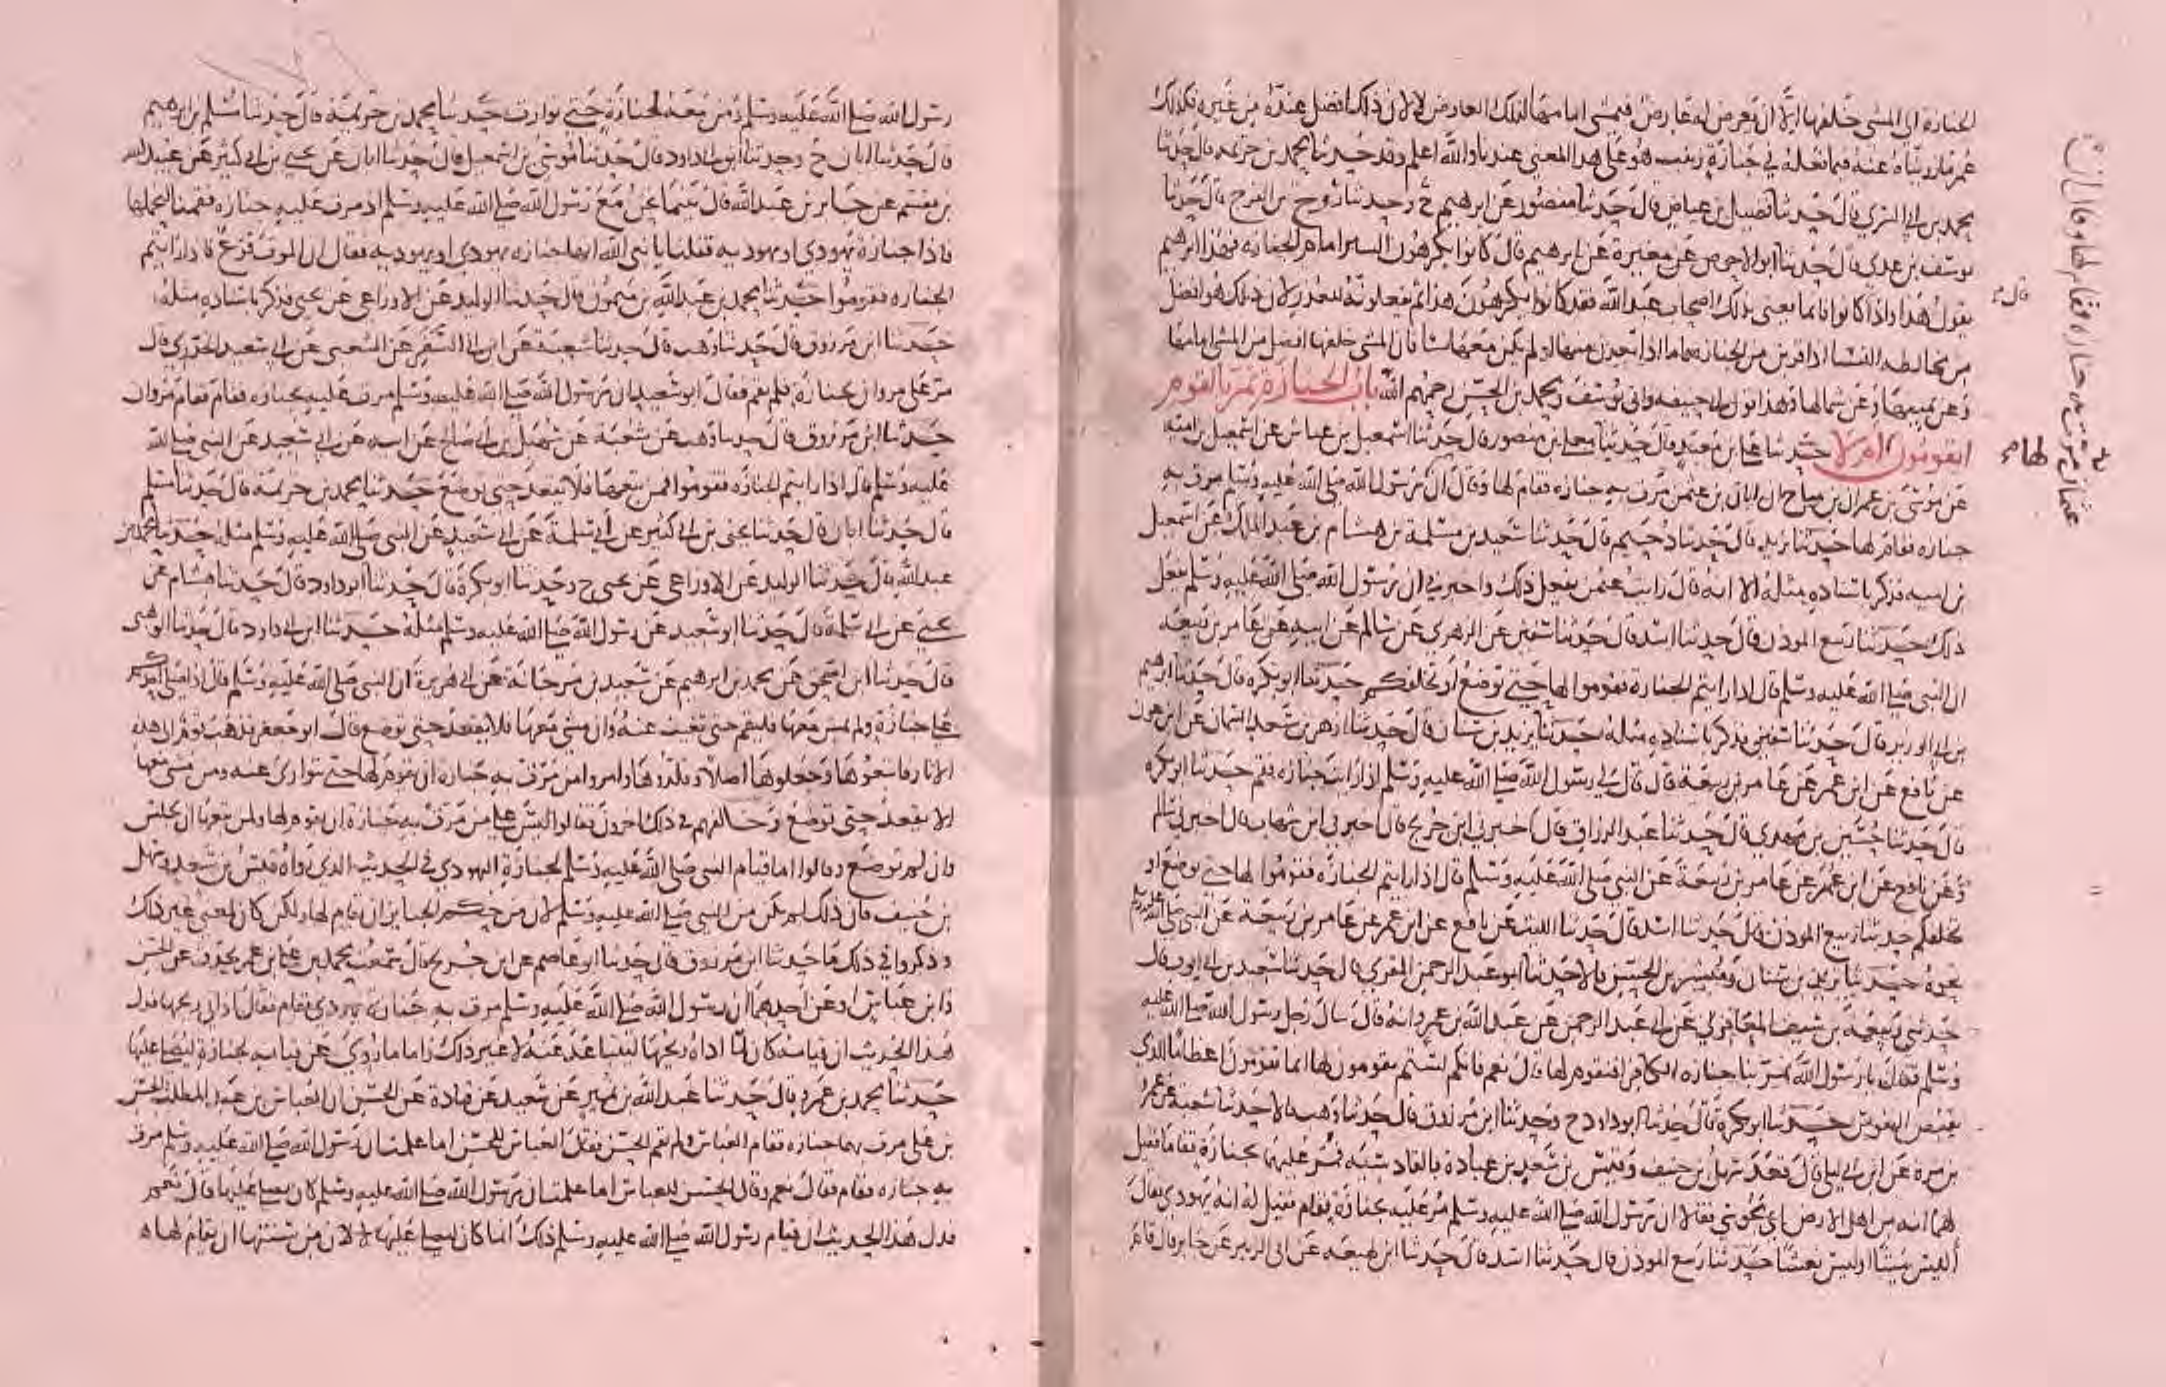 الجنازة الى المشى خلفها الا ان يعرض له عارض فيمشى امامها لذلك العارض لا لان ذلك افضل عنده من غيره فكذلك
عمر فيما روينا عنه فيما فعله في جنازة زينب هو على هذا المعنى عندنا والله اعلم وقد حدثنا محمد بن خزيمة قال حدثنا
محمد بن ابي السري قال حدثنا فضيل بن عياض قال حدثنا منصور عن ابرهيم ح وحدثنا روح بن الفرج قال حدثنا
يوسف بن عدي قال حدثنا ابو الاحوص عن مغيرة عن ابرهيم قال كانوا يكرهون السير امام الجنازه فهذا ابرهيم
يقول هذا واذا قال كانوا فانما يعنى بذلك اصحاب عبد الله فقد كانوا يكرهون هذا ثم يفعلونه للعذر لان ذلك هو افضل
من مخالطه النسا اذا قربن من الجنازه فاما اذا بعدن منها او لم يكن معها نسا فان المشى خلفها افضل من المشى امامها
وعن يمينها وعن شمالها وهذا قول ابي حنيفه وابي يوسف ومحمد بن الحسن رحمهم الله باب الجنازة تمر بالقوم
ايقومون لها ام لا حدثنا علي بن معبد قال حدثنا معلى بن منصور قال حدثنا اسمعيل بن عياش عن اسمعيل بن اميه
عن موسى بن عمران بن مناح ان ابان بن عثمن مرت به جنازه فقام لها وقال ان عثمان مرت به جنازه فقام لها وقال ان رسول الله صلى الله عليه وسلم مرت به
جنازه فقام لها حدثنا يزيد قال حدثنا دحيم قال حدثنا سعيد بن مسلمة بن هشام بن عبد الملك عن اسمعيل
بن اميه فذكر باسناده مثله الا انه قال رايت عثمن يفعل ذلك واخبرني ان رسول الله صلى الله عليه وسلم فعل
ذلك حدثنا ربيع الموذن قال حدثنا اسد قال حدثنا سفين عن الزهري عن سالم عن ابيه عن عامر بن ربيعه
ان النبي صلى الله عليه وسلم قال اذا رايتم الجنازة فقوموا لها حتى توضع او تخلفكم حدثنا ابو بكره قال حدثنا ابرهيم
بن ابي الوزير قال حدثنا سفين فذكر باسناده مثله حدثنا يزيد بن سنان قال حدثنا ازهر بن سعد السمان عن ابن عون
عن نافع عن ابن عمر عن عامر بن ربيعة قال قال لي رسول الله صلى الله عليه وسلم اذا رايت جنازه فقم حدثنا ابو بكره
قال حدثنا حسين بن مهدي قال حدثنا عبد الرزاق قال اخبرني ابن جريج قال اخبرني ابن شهاب قال اخبرني سالم
وعن نافع عن ابن عمر عن عامر بن ربيعة عن النبي صلى الله عليه وسلم قال اذا رايتم الجنازه فقوموا لها حتى توضع او
تخلفكم حدثنا ربيع الموذن قال حدثنا اسد قال حدثنا الليث عن نافع عن ابن عمر عن عامر بن ربيعة عن النبي صلى الله عليه وسلم
نحوه حدثنا يزيد بن سنان ونصر بن الحسين قالا حدثنا ابو عبد الرحمن المقري قال حدثنا سعيد بن ابي ايوب قال
حدثني ربيعة بن سيف المعافري عن ابي عبد الرحمن عن عبد الله بن عمرو انه قال سال رجل رسول الله صلى الله عليه
وسلم فقال يا رسول الله تمر بنا جنازه الكافر افنقوم لها قال نعم فانكم لستم تقومون لها انما تقومون اعظاما للذي
يقبض النفوس حدثنا ابو بكرة قال حدثنا ابو داود ح وحدثنا ابن مرزوق قال حدثنا وهب قالا حدثنا شعبة عن عمرو
بن مره عن ابن ابي ليلى قال قعد سهل بن حنيف وقيس بن سعد بن عبادة بالقادسيه فمر عليهما بجنازة فقاما فقيل
لهما انه من اهل الارض اي مجوسي فقالا ان رسول الله صلى الله عليه وسلم مر عليه بجنازة فقام فقيل له انه يهودي فقال
اليس ميتا او ليس نفسا حدثنا ربيع الموذن قال حدثنا اسد قال حدثنا ابن لهيعه عن ابي الزبير عن جابر قال قام
رسول الله صلى الله عليه وسلم ومن معه لجنازة حتى توارت حدثنا محمد بن خزيمة قال حدثنا مسلم بن ابرهيم
قال حدثنا ابان ح وحدثنا ابن ابي داود قال حدثنا موسى بن اسمعيل قال حدثنا ابان عن يحيى بن ابي كثير عن عبيد الله
بن مقسم عن جابر بن عبد الله قال بينما نحن مع رسول الله صلى الله عليه وسلم اذ مرت عليه جنازه فقمنا لنحملها
فاذا جنازة يهودي او يهوديه فقلنا يا نبي الله انها جنازه يهودي او يهوديه فقال ان الموت فزع فاذا رايتم
الجنازه فقوموا حدثنا محمد بن عبد الله بن ميمون قال حدثنا الوليد عن الاوزاعي عن يحيى فذكر باسناده مثله
حدثنا ابن مرزوق قال حدثنا وهب قال حدثنا شعبة عن ابن ابي السفر عن الشعبي عن ابي سعيد الخدري قال
مر على مروان بجنازة فلم يقم فقال ابو سعيد ان رسول الله صلى الله عليه وسلم مرت عليه بجنازه فقام فقام مروان
حدثنا ابن مرزوق قال حدثنا وهب عن شعبة عن سهيل بن ابي صالح عن ابيه عن ابي سعيد عن النبي صلى الله
عليه وسلم قال اذا رايتم الجنازه فقوموا فمن تبعها فلا يقعد حتى توضع حدثنا محمد بن خزيمة قال حدثنا مسلم
قال حدثنا ابان قال حدثنا يحيى بن ابي كثير عن ابي سلمة عن ابي سعيد عن النبي صلى الله عليه وسلم مثله حدثنا محمد بن
عبد الله قال حدثنا الوليد عن الاوزاعي عن يحيى ح وحدثنا ابو بكرة قال حدثنا ابو داود قال حدثنا هشام عن
يحيى عن ابي سلمة قال حدثنا ابو سعيد عن رسول الله صلى الله عليه وسلم مثله حدثنا ابن ابي داود قال حدثنا الوهبي
قال حدثنا ابن اسحق عن محمد بن ابرهيم عن سعيد بن مرجانة عن ابي هريرة ان النبي صلى الله عليه وسلم قال اذا صلى احدكم
على جنازة ولم يمش معها فليقم حتى تغيب عنه وان مشى معها فلا يقعد حتى توضع قال ابو جعفر فذهب قوم الى هذه
الاثار فاتبعوها وجعلوها اصلا وقلدوها وامروا من مرت به جنازه ان يقوم لها حتى تتوارى عنه ومن مشى معها
الا يقعد حتى توضع وخالفهم في ذلك اخرون فقالوا ليس على من مرت به جنازة ان يقوم لها ولمن تبعها ان يجلس
وان لم توضع وقالوا اما قيام النبي صلى الله عليه وسلم لجنازة اليهودي في الحديث الذي رواه قيس بن سعد وسهل
بن حنيف فان ذلك لم يكن من النبي صلى الله عليه وسلم لان من حكم الجنايز ان يقام لها ولكن كان لمعنى غير ذلك
وذكروا في ذلك ما حدثنا ابن مرزوق قال حدثنا ابو عاصم عن ابن جريج قال سمعت محمد بن علي بن عمر يحدث عن الحسن
وابن عباس او عن احدهما ان رسول الله صلى الله عليه وسلم مرت به جنازة يهودي فقام فقال اذاني ريحها فدل
هذا الحديث ان قيامه كان لما اذاه ريحها ليتباعد عنه لا غير ذلك واما ما روي عن قيامه لجنازة ليصلى عليها
حدثنا محمد بن عمرو قال حدثنا عبد الله بن نمير عن سعيد عن قتادة عن الحسن ان العباس بن عبد المطلب والحسن
بن علي مرت بهما جنازه فقام العباس ولم يقم الحسن فقال العباس للحسن اما علمت ان رسول الله صلى الله عليه وسلم مرت
به جنازه فقام فقال نعم وقال الحسن للعباس اما علمت ان رسول الله صلى الله عليه وسلم كان يصلى عليها قال نعم
فدل هذا الحديث ان قيام رسول الله صلى الله عليه وسلم ذلك انما كان ليصلى عليها لا لان من سنتها ان يقام لها